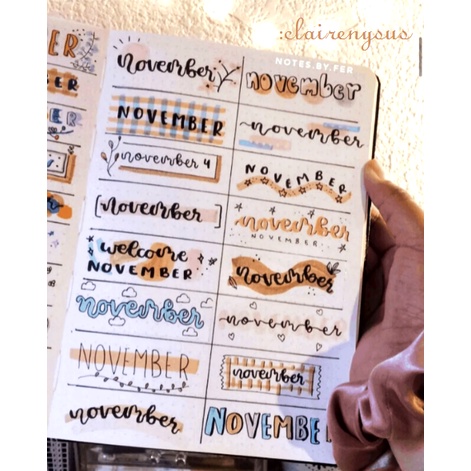 :clairenysus
NOTES.BY.FER
ER
november
november
NOVEMBER
november
november 4
NOVEMBER
november
november
NOVEMBER
welcome
NOVEMBER
november
november
november
NOVEMBER
november
november
NOVEMBE